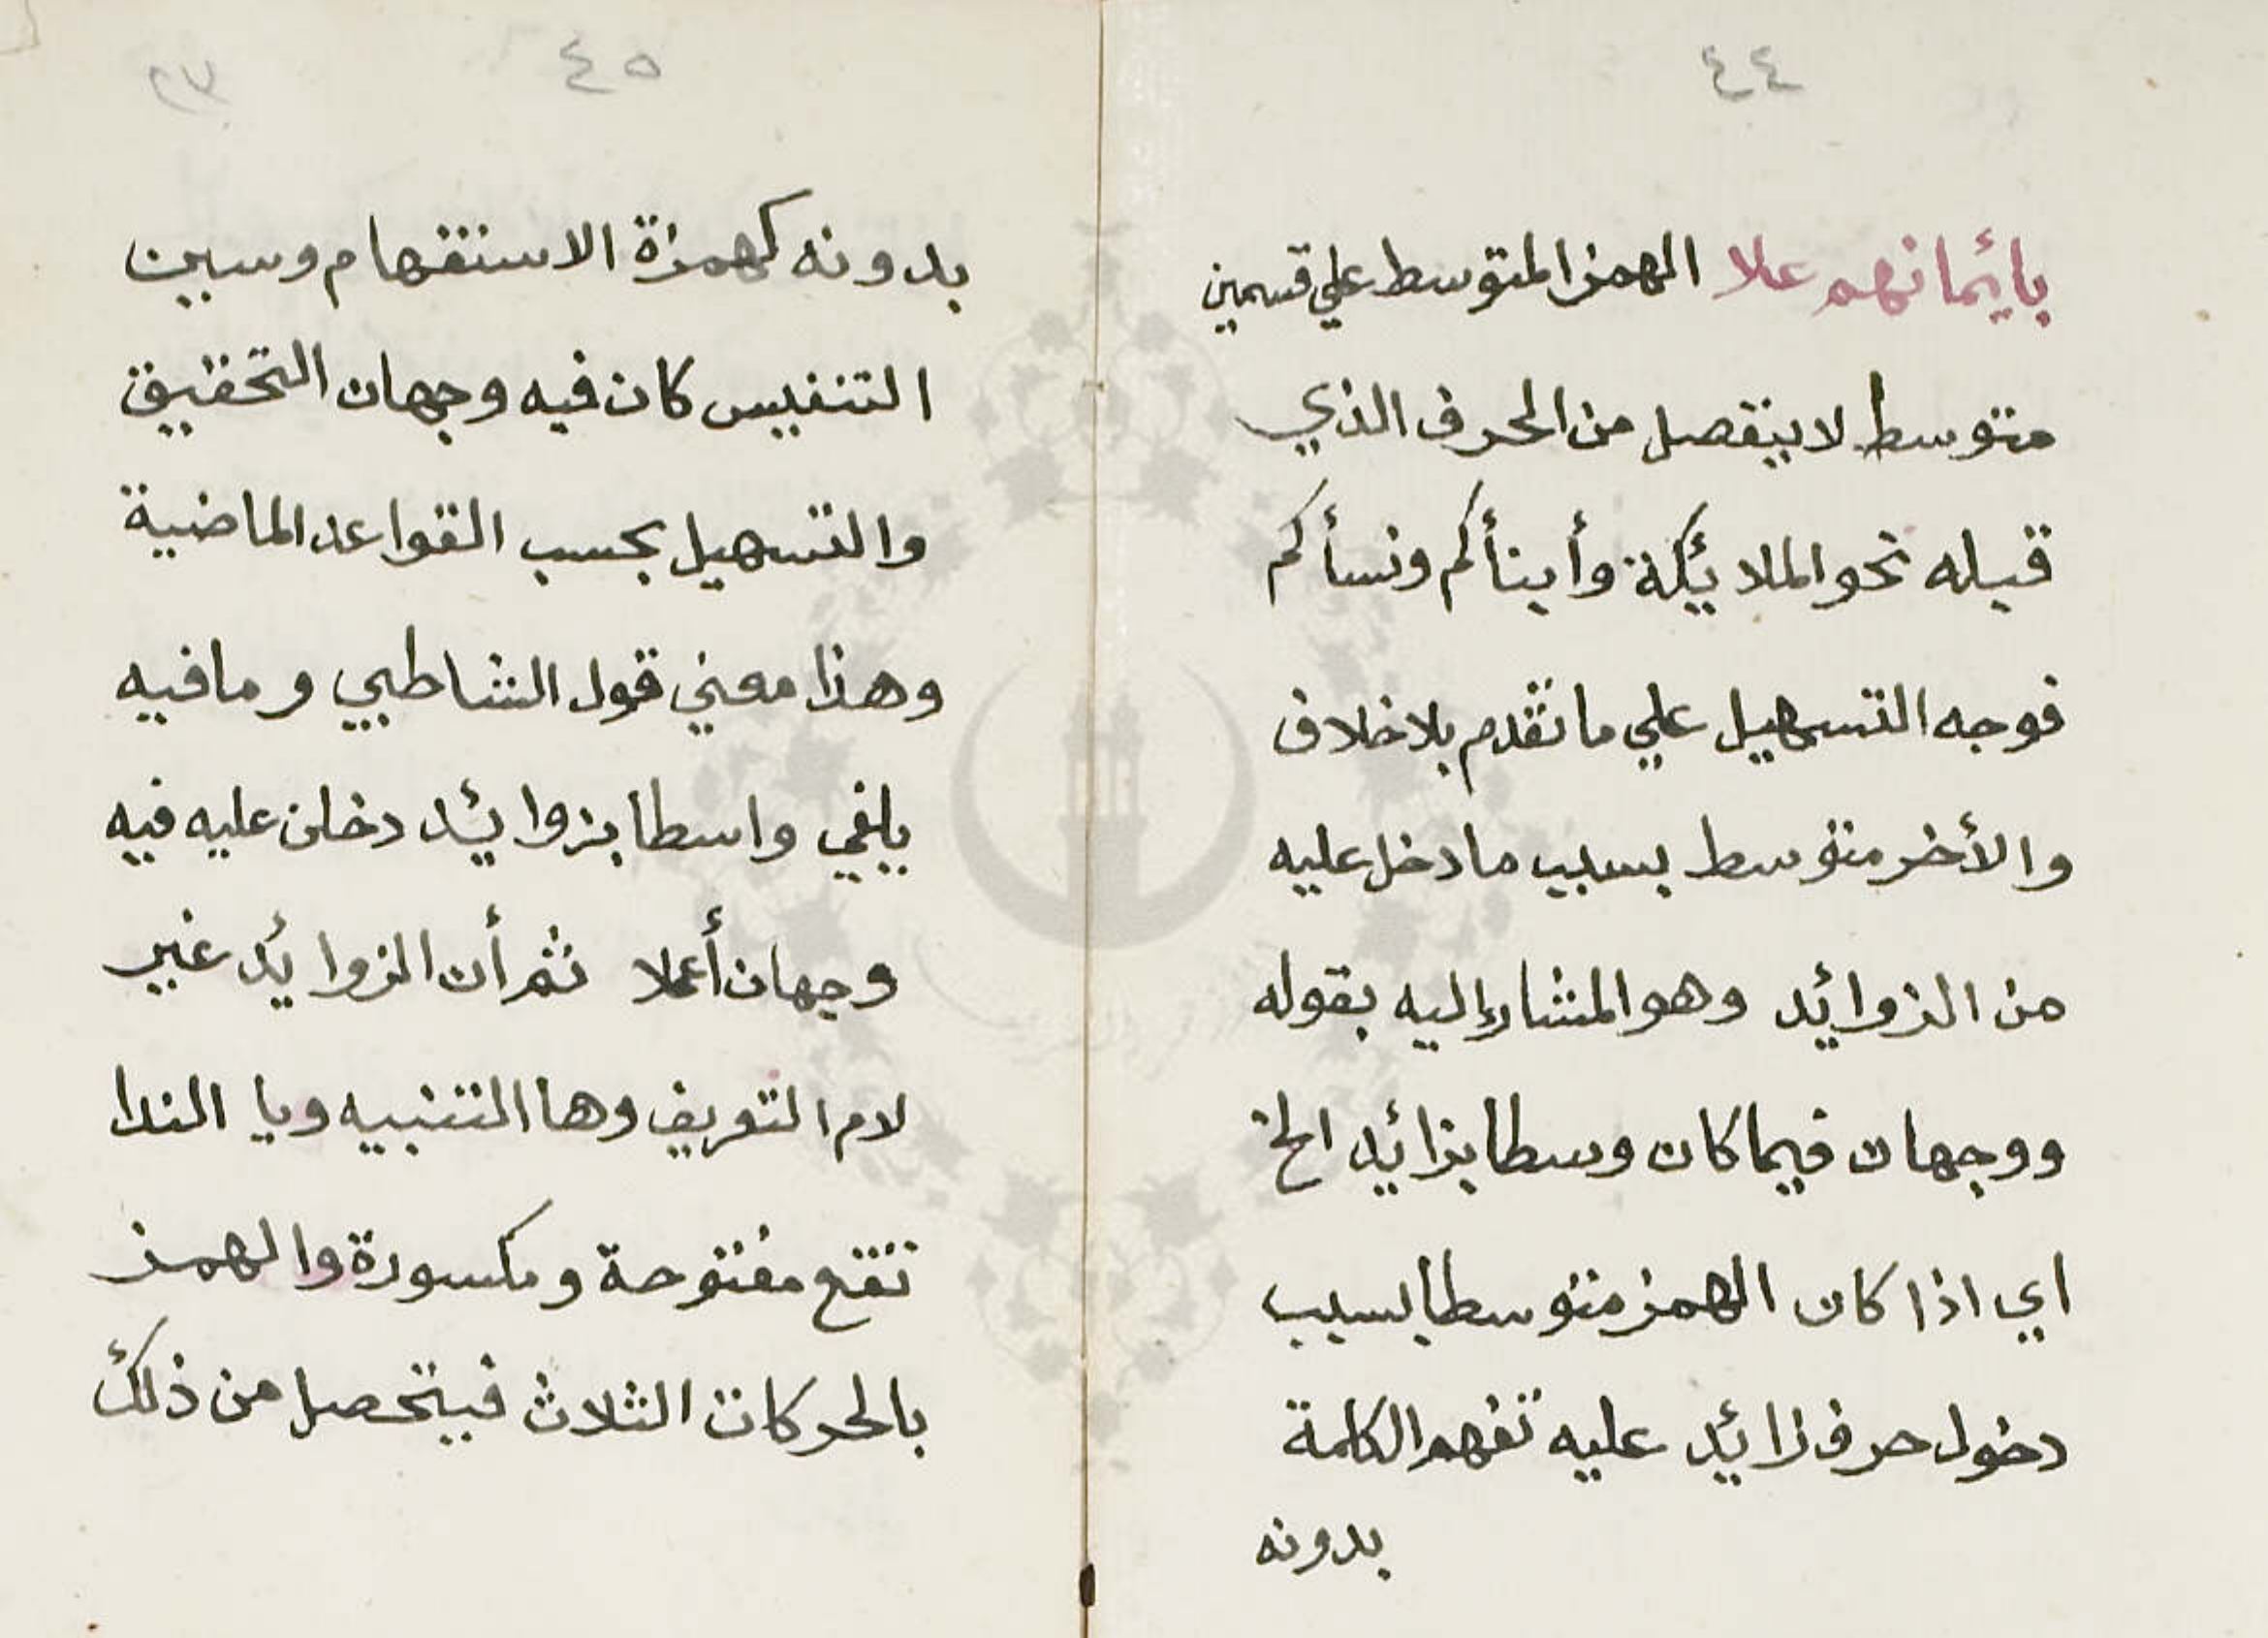 ٤٤
بائمانهم علا الهمز المتوسط علي قسمين
متوسط لا ينفصل من الحرف الذي
قبله نحو الملائكة وأبنأكم ونسأكم
فوجه التسهيل علي ما تقدم بلا خلاف
والأخر متوسط بسبب ما دخل عليه
من الزوائد وهو المشار إليه بقوله
ووجهان فيما كان وسطا بزائد الخ
اي اذا كان الهمز متوسطا بسبب
دخول حرف زائد عليه تفهم الكلمة
بدونه
٤٥
٢٣
بدونه كهمزة الاستفهام وسين
التنفيس كان فيه وجهان التحقيق
والتسهيل بحسب القواعد الماضية
وهذا معني قول الشاطبي وما فيه
يلفي واسطا بزوائد دخلن عليه فيه
وجهان أعملا ثم أن الزوائد غير
لام التعريف وها التنبيه ويا الندا
تقع مفتوحة ومكسورة والهمز
بالحركات الثلاث فيتحصل من ذلك